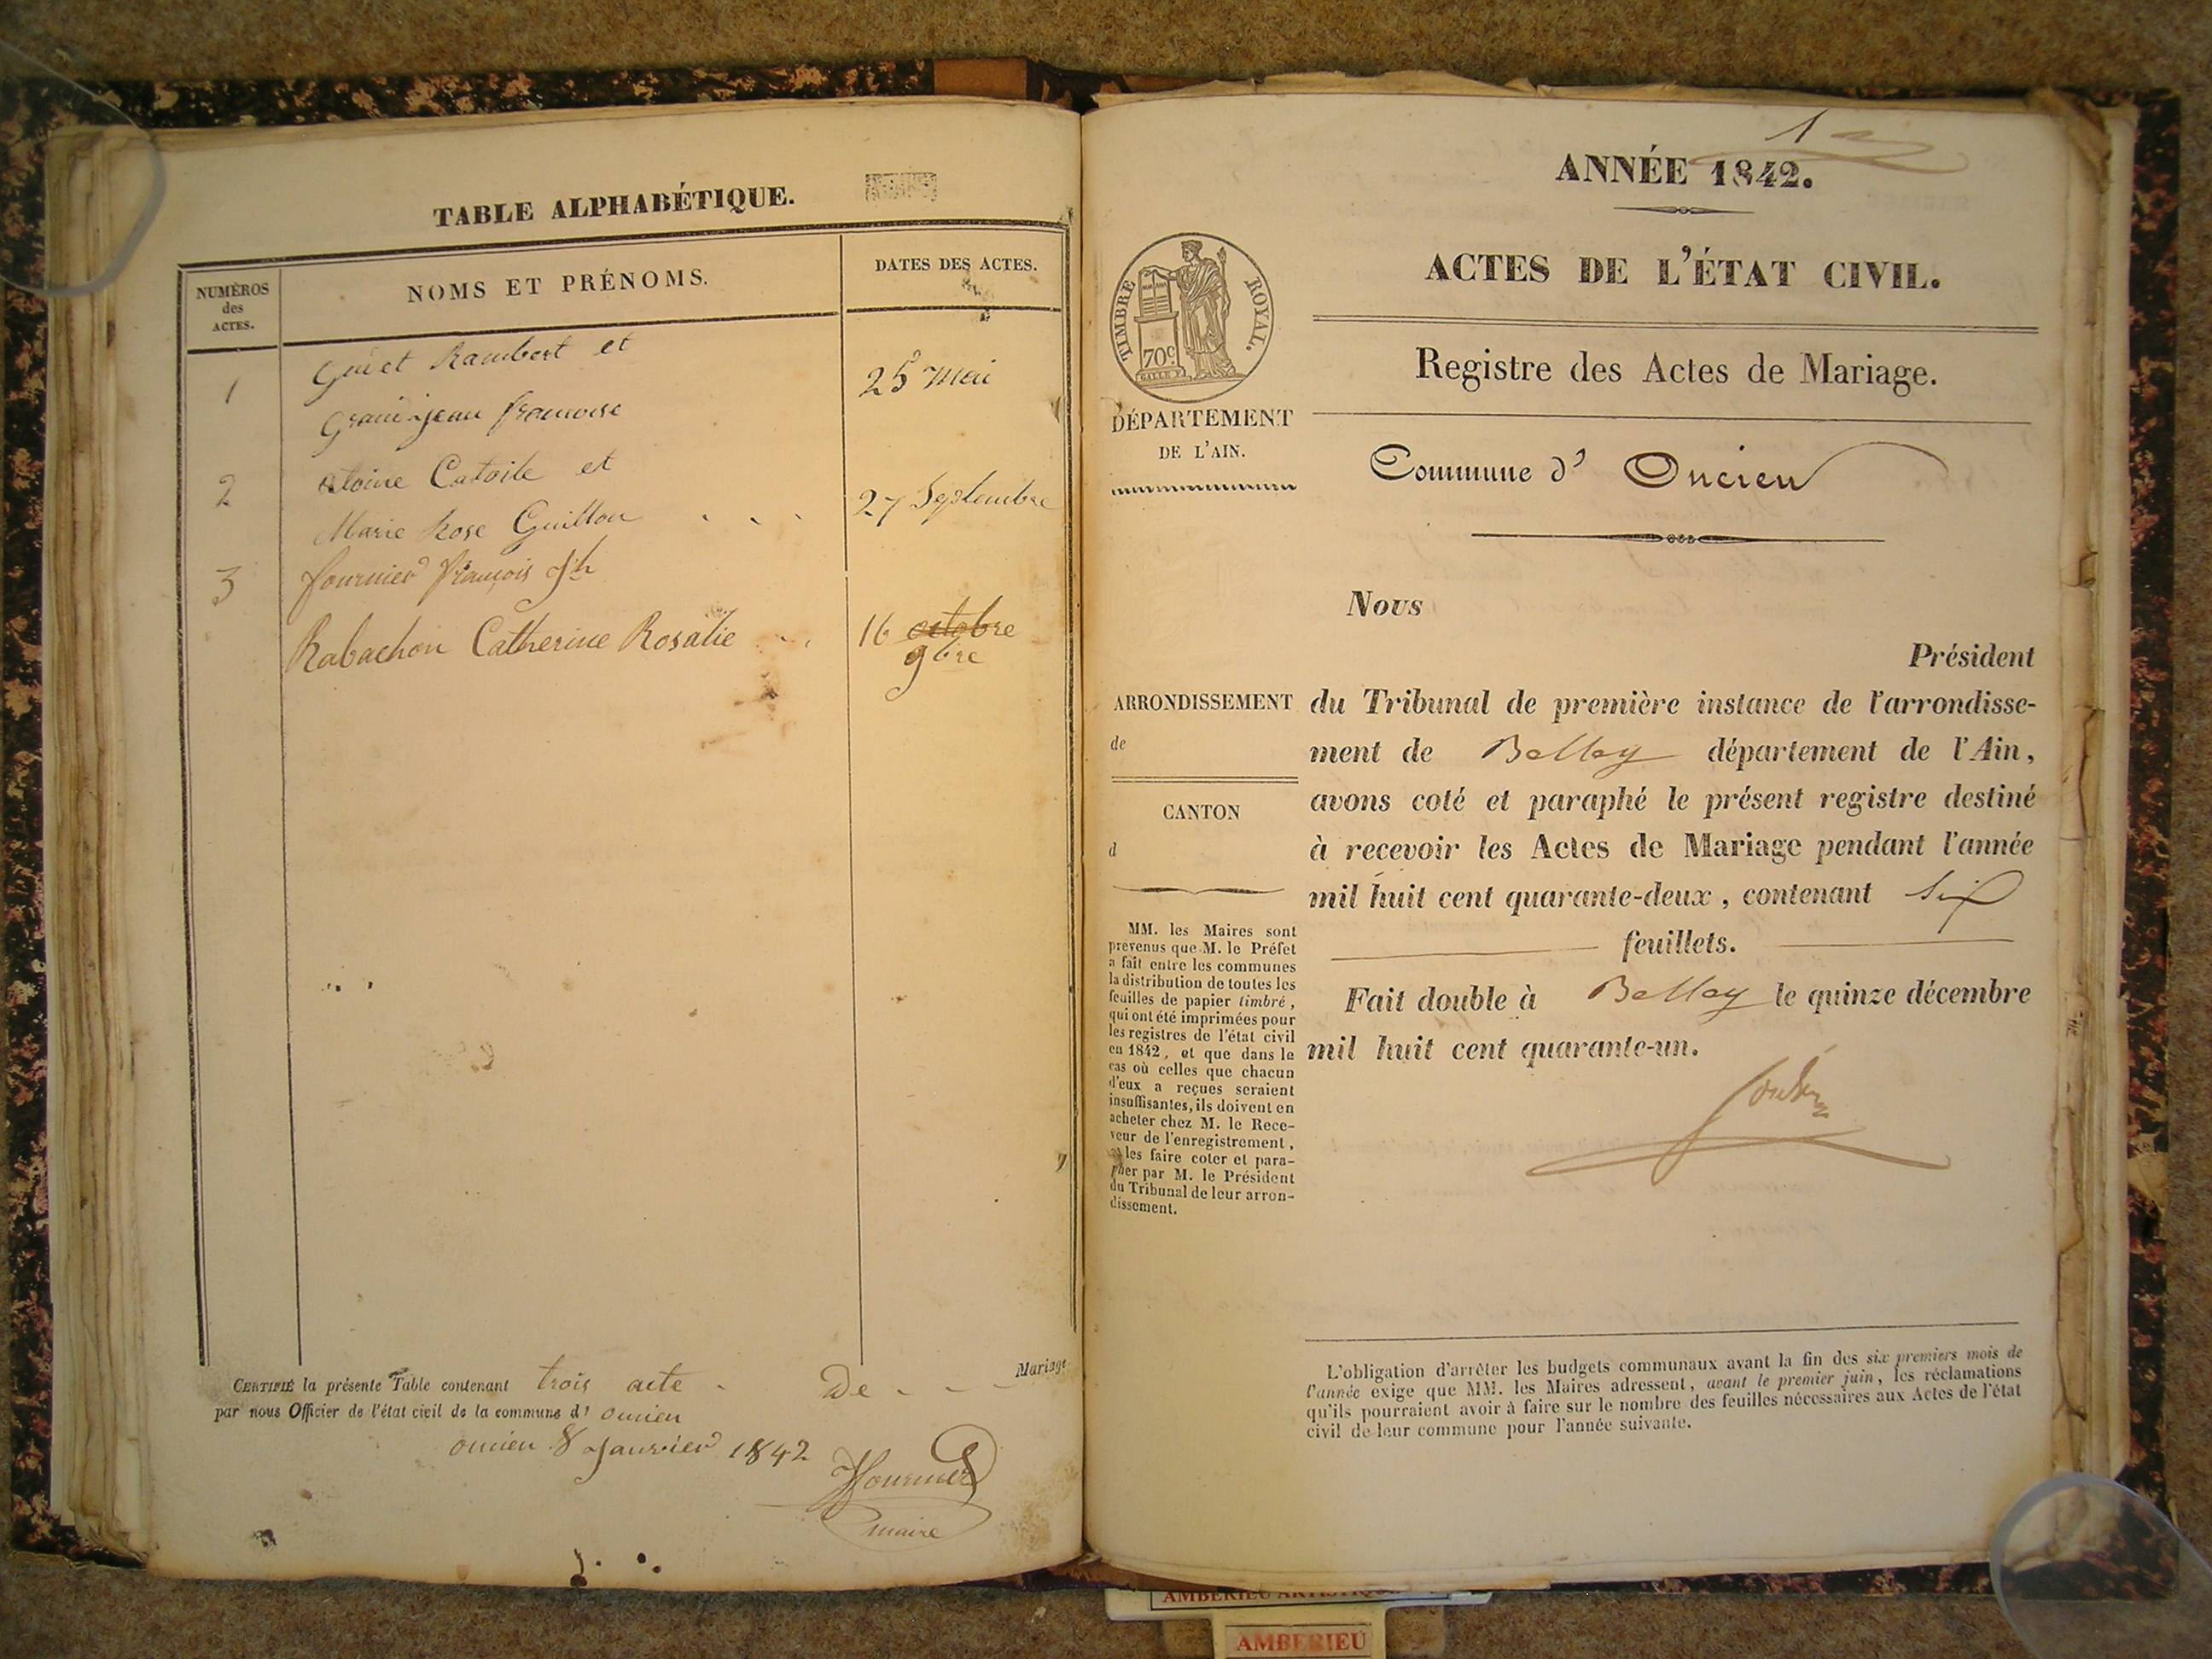 TABLE ALPHABÉTIQUE.
NUMÉROS
des
ACTES.
NOMS ET PRÉNOMS.
DATES DES ACTES.
1
Guiet Rambert et
Grandjean francoise
25 Mai
2
Catoile et
Marie Rose Guillon
27 Septembre
3
fournier françois Jh
Rabachon Catherine Rosalie
16 octobre
9bre
CERTIFIÉ la présente Table contenant trois acte De Mariage
par nous Officier de l'état civil de la commune d' oncieu
oncieu 8 Janvier 1842
Fournier
maire
1
ANNÉE 1842.
ACTES DE L'ÉTAT CIVIL.
TIMBRE ROYAL.
70c
Registre des Actes de Mariage.
DÉPARTEMENT
DE L'AIN.
Commune d' Oncieu
Nous
Président
ARRONDISSEMENT
de
CANTON
d
du Tribunal de première instance de l'arrondisse-
ment de Belley département de l'Ain,
avons coté et paraphé le présent registre destiné
à recevoir les Actes de Mariage pendant l'année
mil huit cent quarante-deux, contenant six
feuillets.
Fait double à Belley le quinze décembre
mil huit cent quarante-un.
MM. les Maires sont
prévenus que M. le Préfet
a fait entre les communes
la distribution de toutes les
feuilles de papier timbré,
qui ont été imprimées pour
les registres de l'état civil
en 1842, et que dans le
cas où celles que chacun
d'eux a reçues seraient
insuffisantes, ils doivent en
acheter chez M. le Rece-
veur de l'enregistrement,
les faire coter et para-
pher par M. le Président
du Tribunal de leur arron-
dissement.
L'obligation d'arrêter les budgets communaux avant la fin des six premiers mois de
l'année exige que MM. les Maires adressent, avant le premier juin, les réclamations
qu'ils pourraient avoir à faire sur le nombre des feuilles nécessaires aux Actes de l'état
civil de leur commune pour l'année suivante.
AMBERIEU